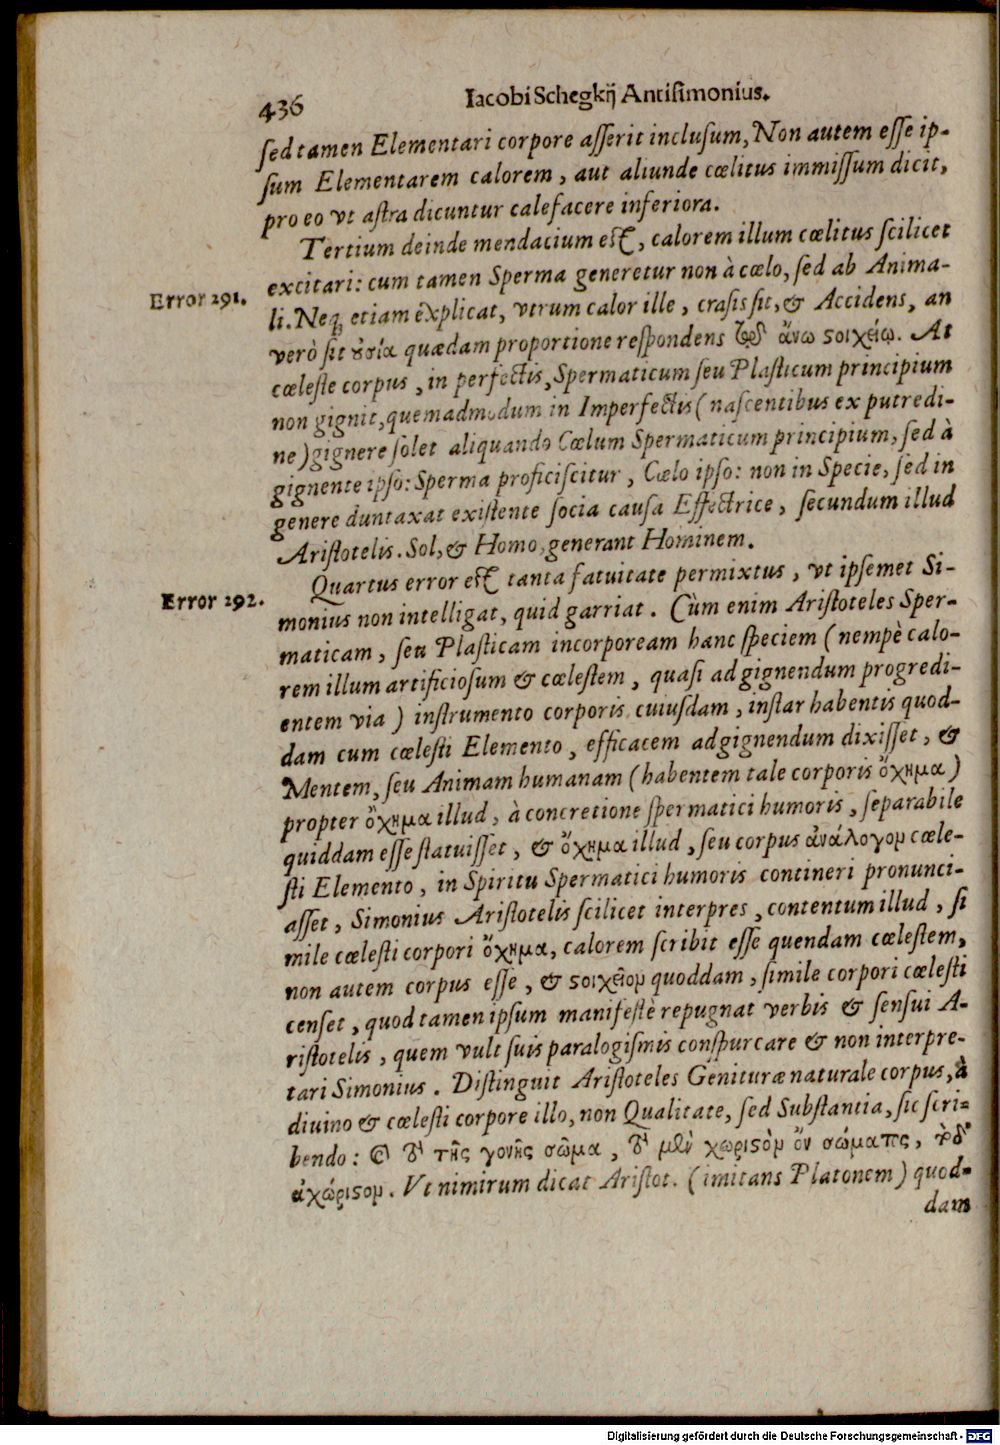 436
Iacobi Schegkij Antisimonius.
sed tamen Elementari corpore asserit inclusum, Non autem esse ip-
sum Elementarem calorem, aut aliunde cœlitus immissum dicit,
pro eo vt astra dicuntur calefacere inferiora.
Tertium deinde mendacium est, calorem illum cœlitus scilicet
excitari: cum tamen Sperma generetur non à cœlo, sed ab Anima-
Error 291.
li. Neq; etiam explicat, vtrum calor ille, crasis sit, & Accidens, an
verò sit ȣσία quædam proportione respondens τῷ ἄνω ϛοιχείῳ. At
cœleste corpus, in perfectis, Spermaticum seu Plasticum principium
non gignit, quemadmodum in Imperfectis (nascentibus ex putredi-
ne) gignere solet aliquando Cœlum Spermaticum principium, sed à
gignente ipso: Sperma proficiscitur, Cœlo ipso: non in Specie, sed in
genere duntaxat existente socia causa Effectrice, secundum illud
Aristotelis. Sol, & Homo, generant Hominem.
Quartus error est tanta fatuitate permixtus, vt ipsemet Si-
Error 292.
monius non intelligat, quid garriat. Cùm enim Aristoteles Sper-
maticam, seu Plasticam incorpoream hanc speciem (nempè calo-
rem illum artificiosum & cœlestem, quasi ad gignendum progredi-
entem via) instrumento corporis cuiusdam, instar habentis quod-
dam cum cœlesti Elemento, efficacem ad gignendum dixisset, &
Mentem, seu Animam humanam (habentem tale corporis ὄχημα)
propter ὄχημα illud, à concretione spermatici humoris, separabile
quiddam esse statuisset, & ὄχημα illud, seu corpus ἀνάλογον cœle-
sti Elemento, in Spiritu Spermatici humoris contineri pronunci-
asset, Simonius Aristotelis scilicet interpres, contentum illud, si
mile cœlesti corpori ὄχημα, calorem scribit esse quendam cœlestem,
non autem corpus esse, & ϛοιχεῖον quoddam, simile corpori cœlesti
censet, quod tamen ipsum manifestè repugnat verbis & sensui A-
ristotelis, quem vult suis paralogismis conspurcare & non interpre-
tari Simonius. Distinguit Aristoteles Genituræ naturale corpus, à
diuino & cœlesti corpore illo, non Qualitate, sed Substantia, sic scri-
bendo: τῆς γονῆς σῶμα, μὲν χωριϛὸν ὂν σώματος,
ἀχώριϛον. Vt nimirum dicat Aristot. (imitans Platonem) quod-
dam
Digitalisierung gefördert durch die Deutsche Forschungsgemeinschaft - DFG